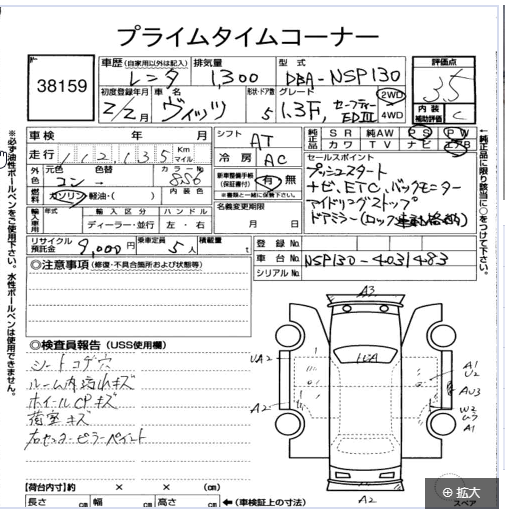 プライムタイムコーナー
38159
車歴 (自家用以外は記入) 排気量 型式 評価点
レンタ 1,300 DBA-NSP130 3.5
初度登録年月 車名 形状・ドア数 グレード 2WD 4WD 内装補助評価 C
ヴィッツ 5 1.3F, セーフティーEDIII
車検 年 月 シフト AT
走行 112135 Km マイル 冷房 AC
純正品 SR 純AW PS PW 革 カワ TV ナビ エアB
外色 元色 色替 カラーNo.
コン→ 8S6
燃料 ガソリン・軽油・( ) 内装色
新車整備手帳(保証書付) 有・無
※書類と一緒に保管下さい。
セールスポイント
プッシュスタート
ナビ, ETC, バックモニター
アイドリングストップ
ドアミラー(ロック
輸入車用 年式 輸入区分 ハンドル
ディーラー・並行 左・右
名義変更期限
月 日
リサイクル預託金 9,000円 乗車定員 5人 積載量 t
登録No.
車台No. NSP130-4031483
シリアルNo.
◎注意事項 (修復・不具合箇所および状態等)
◎検査員報告 (USS使用欄)
シートコゲ穴
ルーム内汚れキズ
ホイールCPキズ
荷室キズ
右センターピラーペイント
A3
UA2
A2
A1
U2
AU3
W2
A1
A2
【荷台内寸】約 × × (cm)
長さ cm 幅 cm 高さ cm ←(車検証上の寸法)
スペア
拡大
※必ず油性ボールペンをご使用下さい。水性ボールペンは使用できません。
←純正品に限り該当に○をつけて下さい。